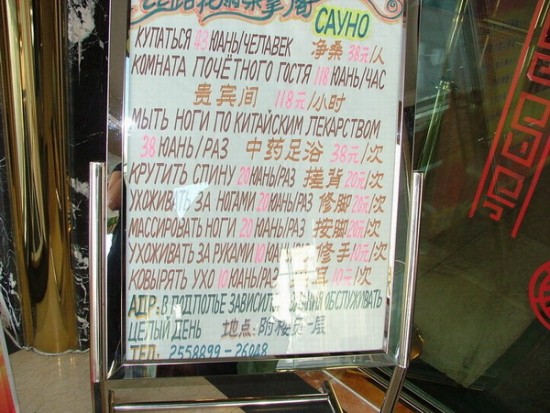 САУНО
КУПАТЬСЯ 43 ЮАНЬ/ЧЕЛАВЕК 净桑 38元/人
КОМНАТА ПОЧЁТНОГО ГОСТЯ 118 ЮАНЬ/ЧАС
贵宾间 118元/小时
МЫТЬ НОГИ ПО КИТАЙСКИМ ЛЕКАРСТВОМ
38 ЮАНЬ/РАЗ 中药足浴 38元/次
КРУТИТЬ СПИНУ 20 ЮАНЬ/РАЗ 搓背 20元/次
УХОЖИВАТЬ ЗА НОГАМИ 20 ЮАНЬ/РАЗ 修脚 20元/次
МАССИРОВАТЬ НОГИ 20 ЮАНЬ/РАЗ 按脚 20元/次
УХОЖИВАТЬ ЗА РУКАМИ 10 修手 10元/次
КОВЫРЯТЬ УХО 10 ЮАНЬ/РАЗ 耳 10元/次
АДР: В ПОДПОЛЬЕ ОБСЛУЖОВАТЬ
ЦЕЛЫЙ ДЕНЬ 地点: 附楼负一层
ТЕЛ: 2558899-26048